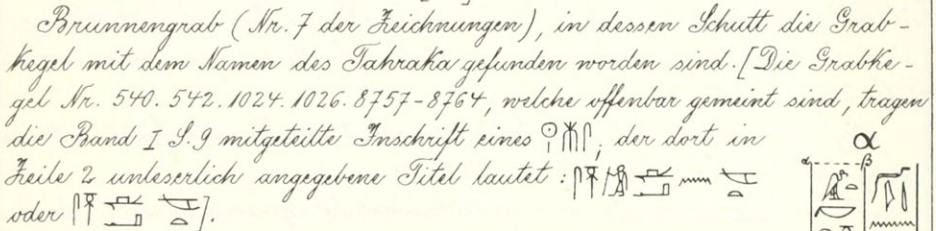 Brunnengrab (Nr. 7 der Zeichnungen), in dessen Schutt die Grab-
kegel mit dem Namen des Tahraka gefunden worden sind. [Die Grabke-
gel Nr. 540. 542. 1024. 1026. 8757-8764, welche offenbar gemeint sind, tragen
die Band I S. 9 mitgeteilte Inschrift eines , der dort in
Zeile 2 unleserlich angegebene Titel lautet :
oder ].
α
α β